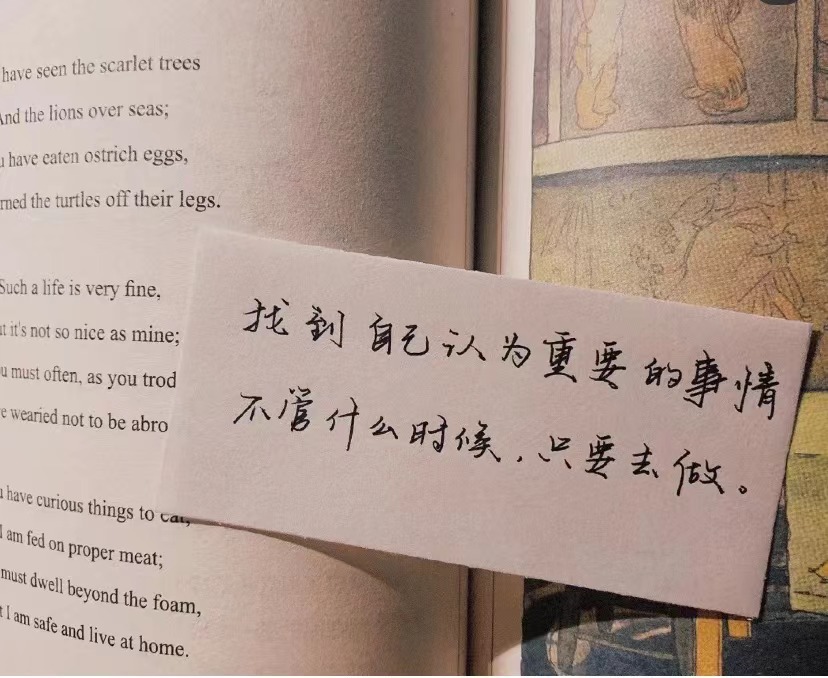 have seen the scarlet trees
And the lions over seas;
have eaten ostrich eggs,
the turtles off their legs.
Such a life is very fine,
it's not so nice as mine;
must often, as you trod
wearied not to be abro
have curious things to eat,
I am fed on proper meat;
must dwell beyond the foam,
I am safe and live at home.
找到自己认为重要的事情
不管什么时候，只要去做。